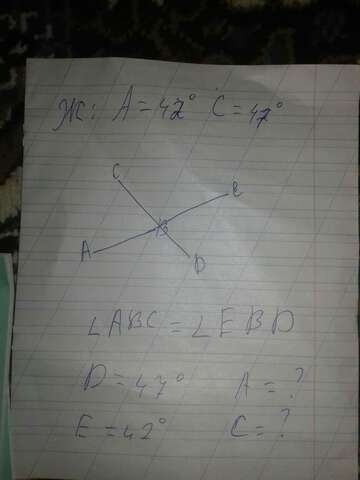 Ж: A = 42° C = 47°
C
E
B
A
D
∠ABC = ∠EBD
D = 47° A = ?
E = 42° C = ?